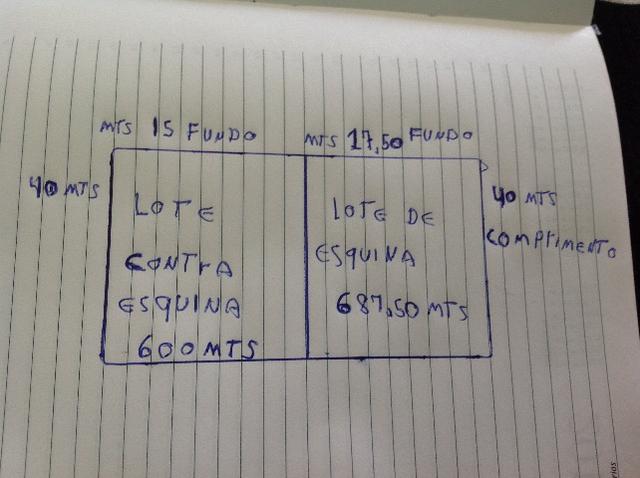 MTS 15 FUNDO
MTS 17,50 FUNDO
40 MTS
LOTE
CONTrA
ESQUINA
600 MTS
LOTE DE
ESQUINA
687,50 MTS
40 MTS
COMPrIMENTO